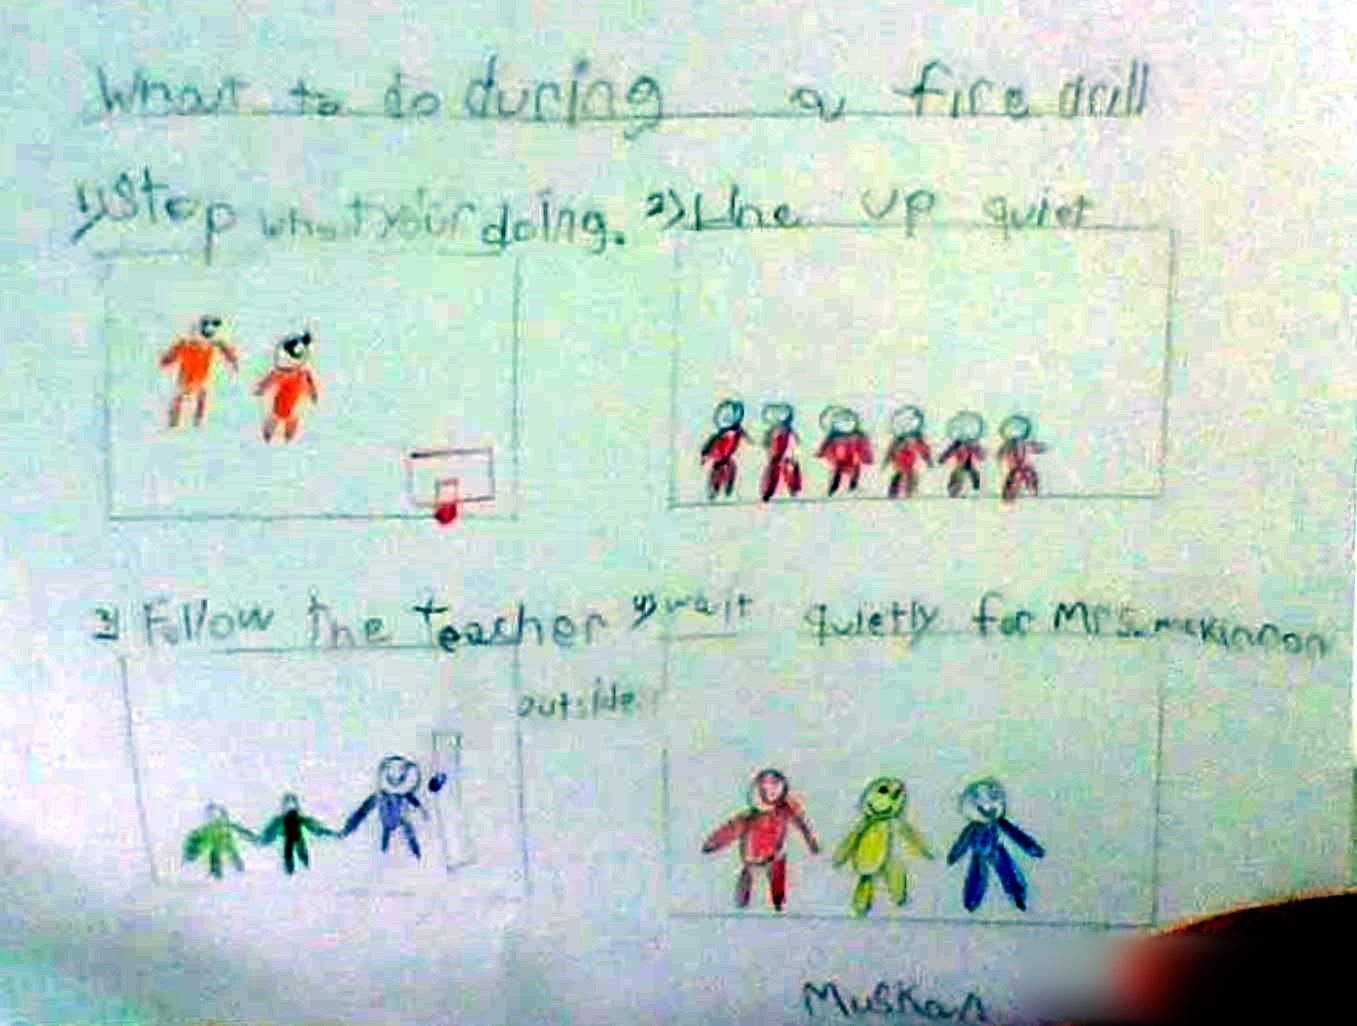 What to do during a fire drill
1) Stop what your doing.
2) Line up quiet
3) Follow the teacher outside
4) wait quietly for Mrs. mckinnon
Muskan